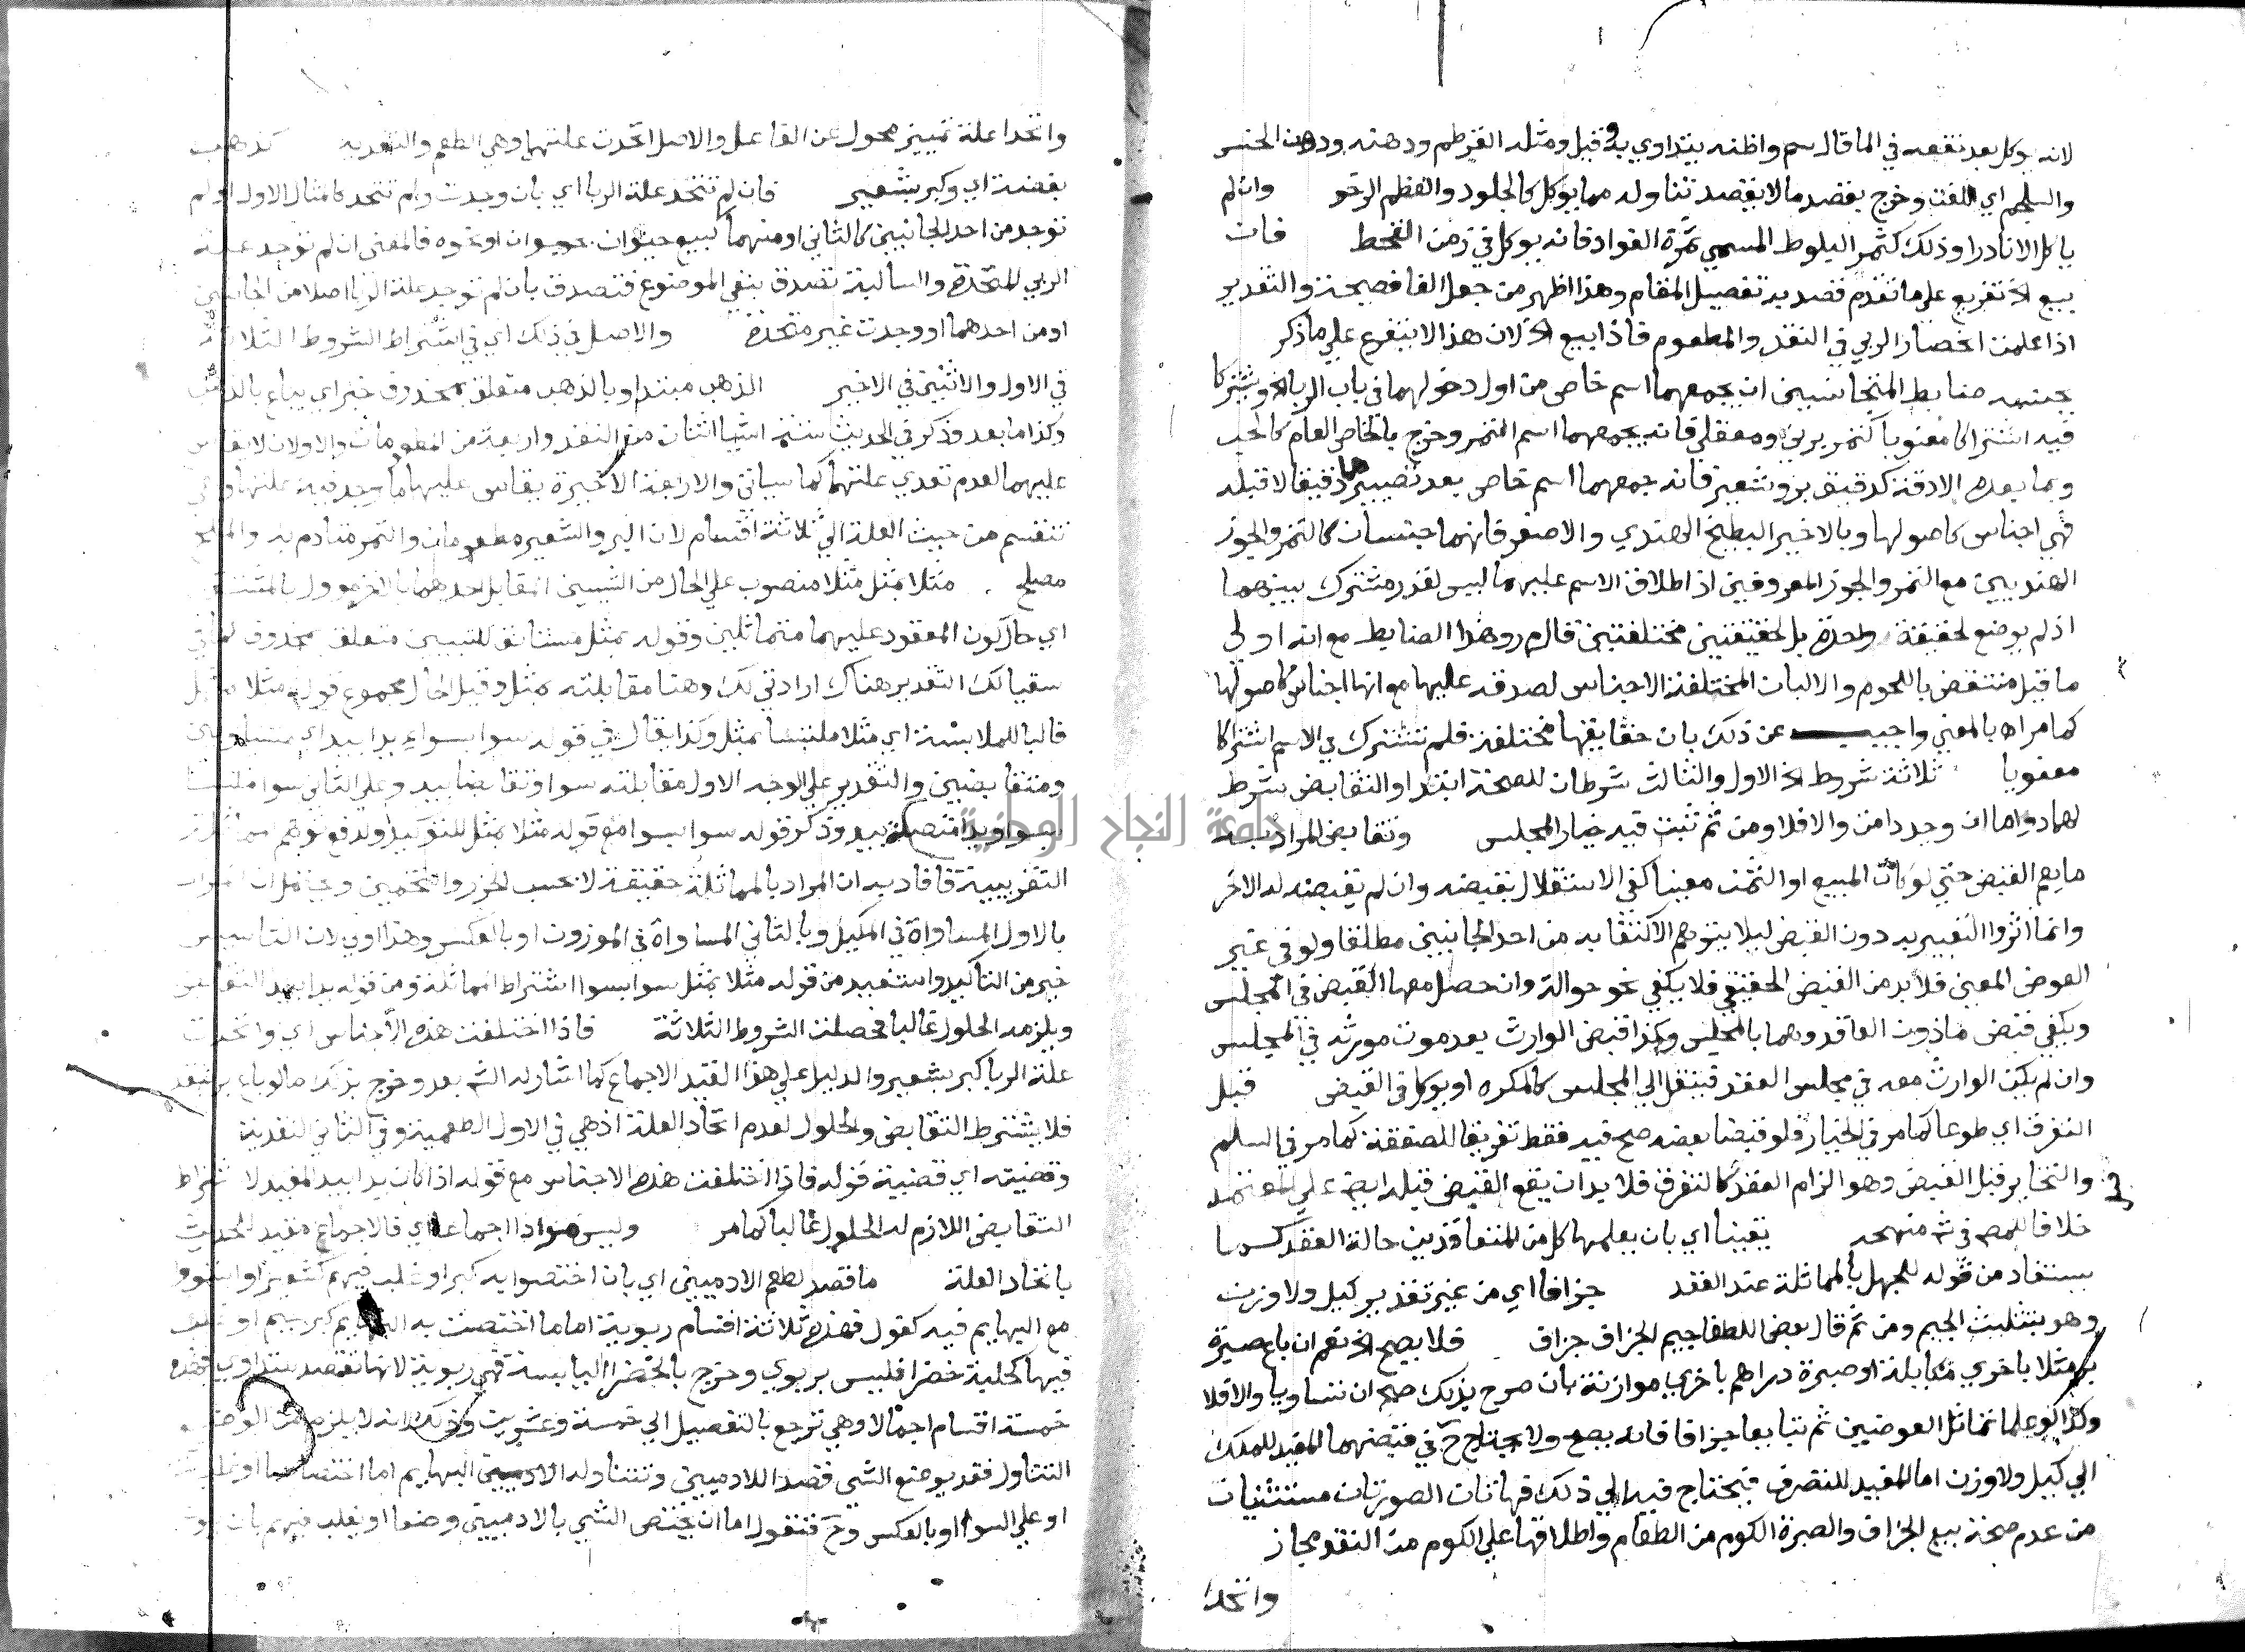 لانه يوكل بعد نقعه في الما قال سم واظنه يتداوي به وقيل ومثله القرطم ودهنه ودهن الخس
والسلجم اي اللفت وخرج بقصد ما لا يقصد تناوله مما يوكل كالجلود والعظم الرخو وان لم
ياكل الا نادرا وذلك كثمر البلوط المسمي ثمرة الفواد فانه يوكل في زمن القحط فان
بيع الخ تفريع علي ما تقدم قصد به تفصيل المقام وهذا اظهر من جعل الفا فصيحة والتقدير
اذا علمت انحصار الربي في النقد والمطعوم فاذا بيع الخ لان هذا لا يتفرع علي ما ذكر
بجنسه ضابط المتجانسين ان يجمعهما اسم خاص من اول دخولهما في باب الربا ويشتركا
فيه اشتراكا معنويا كتمر برني ومعقلي فانه يجمعهما اسم التمر وخرج بالخاص العام كالحب
وبما بعده الادقة كدقيق بر وشعير فانه جمعهما اسم خاص بعد تصييرهما دقيقا لا قبله
فهي اجناس كاصولها وبالاخير البطيخ الهندي والاصفر فانهما جنسان كالتمر والجوز
الهنديين مع التمر والجوز المعروفين اذ اطلاق الاسم عليهما ليس لقدر مشترك بينهما
اذ لم يوضع لحقيقة واحدة بل لحقيقتين مختلفتين قال م ر وهذا الضابط مع انه اولي
ما قيل منتقض باللحوم والالبان المختلفة الاجناس لصدقه عليها مع انها اجناس كاصولها
كما مر اه بالمعني واجيب عن ذلك بان حقايقها مختلفة فلم تشترك في الاسم اشتراكا
معنويا ثلاثة شروط الخ الاول والثالث شرطان للصحة ابتدا والتقابض شرط
لها دواما ان وجد دامت والا فلا ومن ثم ثبت فيه خيار المجلس وتقابض المراد به
ما يعم القبض حتي لو كان المبيع او الثمن معينا كفي الاستقلال بقبضه وان لم يقبضه له الاخر
وانما اثروا التعبير به دون القبض ليلا يتوهم الاكتفا به من احد الجانبين مطلقا ولو في غير
العوض المعين فلا بد من القبض الحقيقي فلا يكفي نحو حوالة وان حصل معها القبض في المجلس
ويكفي قبض ماذون العاقد وهما بالمجلس وكذا قبض الوارث بعد موت مورثه في المجلس
وان لم يكن الوارث معه في مجلس العقد فينتقل الي المجلس كالمكره او يوكل في القبض قبل
التفرق اي طوعا كما مر في الخيار فلو قبضا بعضه صح فيه فقط تفريقا للصفقة كما مر في السلم
والتخاير قبل القبض وهو الزام العقد كالتفرق فلا بد ان يقع القبض قبله ايضا علي المعتمد
خلافا للمص في ش منهجه يقينا اي بان يعلمها كل من المتعاقدين حالة العقد كما
يستفاد من قوله للجهل بالمماثلة عند العقد جزافا اي من غير تقدير كيل ولا وزن
وهو بتثليث الجيم ومن ثم قال بعض اللطفا جيم الجزاف جزاف فلا يصح الخ نعم ان باع صبرة
بر مثلا باخري مكايلة او صبرة دراهم باخري موازنة بان صرح بذلك صح ان تساويا والا فلا
وكذا لو علما تماثل العوضين ثم تبايعا جزافا فانه يصح ولا يحتاج ح في قبضهما المفيد للملك
الي كيل ولا وزن اما المفيد للتصرف فيحتاج فيه الي ذلك فهاتان الصورتان مستثنيات
من عدم صحة بيع الجزاف والصبرة الكوم من الطعام واطلاقها علي الكوم من النقد مجاز
واتحدا
واتحدا علة تمييز محول عن الفاعل والاصل اتحدت علتهما وهي الطعم والنقدية كذهب
بفضة اي وكبر بشعير فان لم تتحد علة الربا اي بان وجدت ولم تتحد كامثال الاول او لم
توجد من احد الجانبين كالثاني او منهما كبيع حيوان بحيوان او نحوه فالمعني ان لم توجد علة
الربي المتحدة والسالبة تصدق بنفي الموضوع فتصدق بان لم توجد علة الربا اصلا من الجانبين
او من احدهما او وجدت غير متحدة والاصل في ذلك اي في اشتراط الشروط الثلاثة
في الاول والاثنين في الاخير الذهب مبتدا وبالذهب متعلق بمحذوف خبر اي يباع بالذهب
وكذا ما بعد وذكر في الحديث ستة اشيا اثنان من النقد واربعة من المطعومات والاولان لا يقاس
عليهما لعدم تعدي علتهما كما سياتي والاربعة الاخيرة يقاس عليها ما وجد فيه علتها وهي
تنقسم من حيث العلة الي ثلاثة اقسام لان البر والشعير مطعومان والتمر متادم به والملح
مصلح مثلا بمثل مثلا منصوب علي الحال من الشيين المقابل احدهما بالاخر موول بالمشتق
اي حال كون المعقود عليهما متماثلين وقوله بمثل مستانف للتبيين متعلق بمحذوف كما في
سقيا لك التقدير هناك ارادتي لك وهنا مقابلته بمثل وقيل الحال مجموع قوله مثلا بمثل
فالبا للملابسة اي مثلا ملتبسا بمثل وكذا يقال في قوله سوا بسواء يدا بيد اي متساويين
ومتقابضين والتقدير علي الوجه الاول مقابلته سوا وتقابضا بيد وعلي الثاني سوا ملتبسا
بسوا ويدا متصلة بيد وذكر قوله سوا بسوا مع قوله مثلا بمثل للتوكيد ولدفع توهم
التقريبية فافاد به ان المراد بالمماثلة حقيقة لا بحسب الحزر والتخمين ويحتمل ان المراد
بالاول المساواة في المكيل وبالثاني المساواة في الموزون او بالعكس وهذا اولي لان التاسيس
خير من التاكيد واستفيد من قوله مثلا بمثل سوا بسوا اشتراط المماثلة ومن قوله يدا بيد التقابض
ويلزمه الحلول غالبا فحصلت الشروط الثلاثة فاذا اختلفت هذه الاجناس اي واتحدت
علة الربا كبر بشعير والدليل علي هذا القيد الاجماع كما اشار له الش بعد وخرج بذلك ما لو باع بر بنقد
فلا يشترط التقابض والحلول لعدم اتحاد العلة اذ هي في الاول الطعمية وفي الثاني النقدية
وقضيته اي قضية قوله فاذا اختلفت هذه الاجناس مع قوله اذا كان يدا بيد المفيد لاشتراط
التقابض اللازم له الحلول غالبا كما مر وليس مرادا اجماعا اي فالاجماع مقيد للحديث
باتحاد العلة ما قصد لطعم الادميين اي بان اختصوا به كبر او غلب فيهم كشعير او استووا
مع البهايم فيه كفول فهذه ثلاثة اقسام ربوية اما ما اختصت به البهايم كبرسيم او غلب
فيها كحلبة خضرا فليس بربوي وخرج بالخضرا اليابسة فهي ربوية لانها تقصد للتداوي فهذه
خمسة اقسام اجمالا وهي ترجع بالتفصيل الي خمسة وعشرين وذلك لانه لا يلزم من الوضع
التناول فقد يوضع الشي قصدا للادميين وتتناوله البهايم اما اختصاصا او غلبة
او علي السوا او بالعكس وح فتقول اما ان يختص الشي بالادميين وضعا او يغلب فيهم بان
جامعة النجاح الوطنية